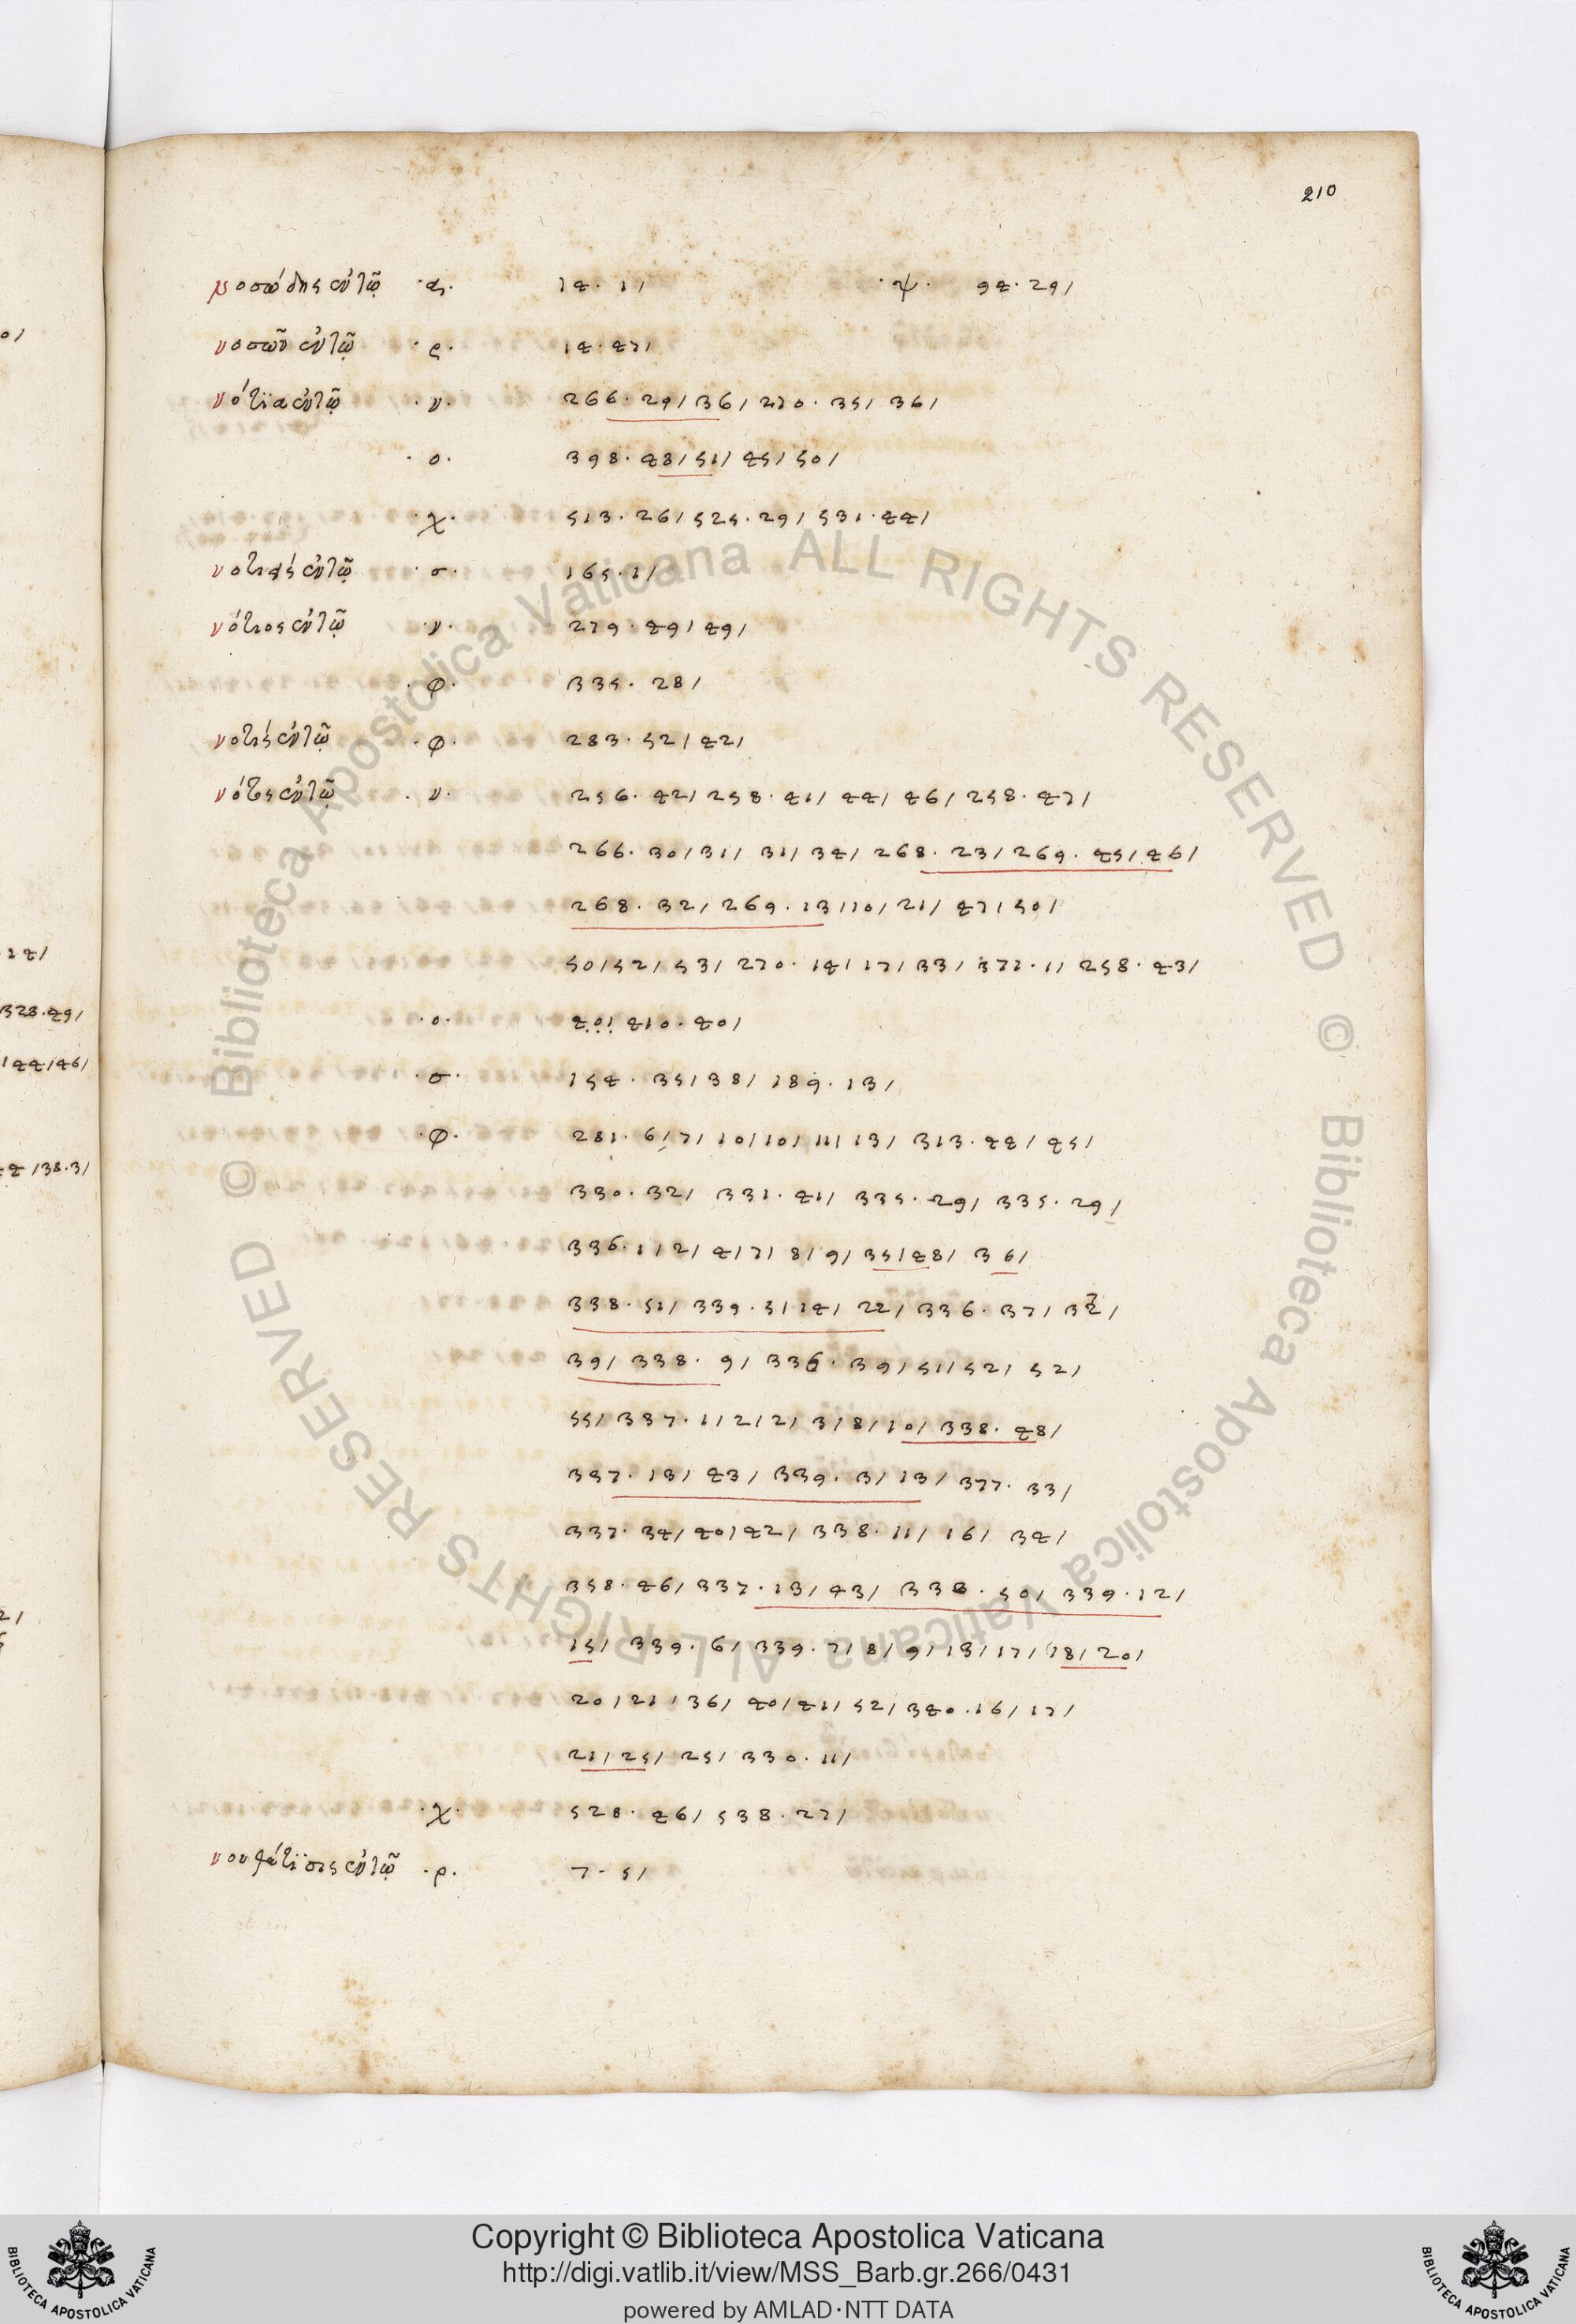 210
νοσώδης ἐν τῷ ·α· 14·11/ ·ψ· 94·29/
νοσῶν ἐν τῷ ·ρ· 14·47/
νότια ἐν τῷ ·ν· 266·29/36/270·35/36/
·ο· 398·48/51/45/50/
·χ· 513·26/525·29/531·44/
ἐν τῷ ·σ· 165·1/
νότιος ἐν τῷ ·ν· 279·49/49/
·φ· 335·28/
νοτὶς ἐν τῷ ·φ· 283·52/42/
νότος ἐν τῷ ·ν· 256·42/258·41/44/46/258·47/
266·30/31/31/34/268·23/269·45/46/
268·32/269·13/10/21/47/50/
50/52/53/270·14/17/33/371·1/258·43/
·ο· 40/410·40/
·σ· 154·35/38/189·13/
·φ· 281·6/7/10/10/11/13/313·44/45/
330·32/331·41/335·29/335·29/
336·1/2/4/7/8/9/35/48/36/
338·51/339·3/14/22/336·37/37/
39/338·9/336·39/51/52/52/
55/337·1/2/2/3/8/10/338·48/
337·13/43/339·3/13/377·33/
337·34/40/42/338·11/16/34/
358·46/337·13/43/338·50/339·12/
15/339·6/339·7/8/9/13/17/18/20/
20/21/36/40/41/52/340·16/17/
21/25/25/330·11/
·χ· 528·46/538·27/
ἐν τῷ ·ρ· 7·5/
0/
14/
328·49/
44/46/
4/38·3/
2/
© Biblioteca Apostolica Vaticana ALL RIGHTS RESERVED © Biblioteca Apostolica Vaticana ALL RIGHTS RESERVED
Copyright © Biblioteca Apostolica Vaticana
http://digi.vatlib.it/view/MSS_Barb.gr.266/0431
powered by AMLAD·NTT DATA
BIBLIOTECA APOSTOLICA VATICANA
BIBLIOTECA APOSTOLICA VATICANA